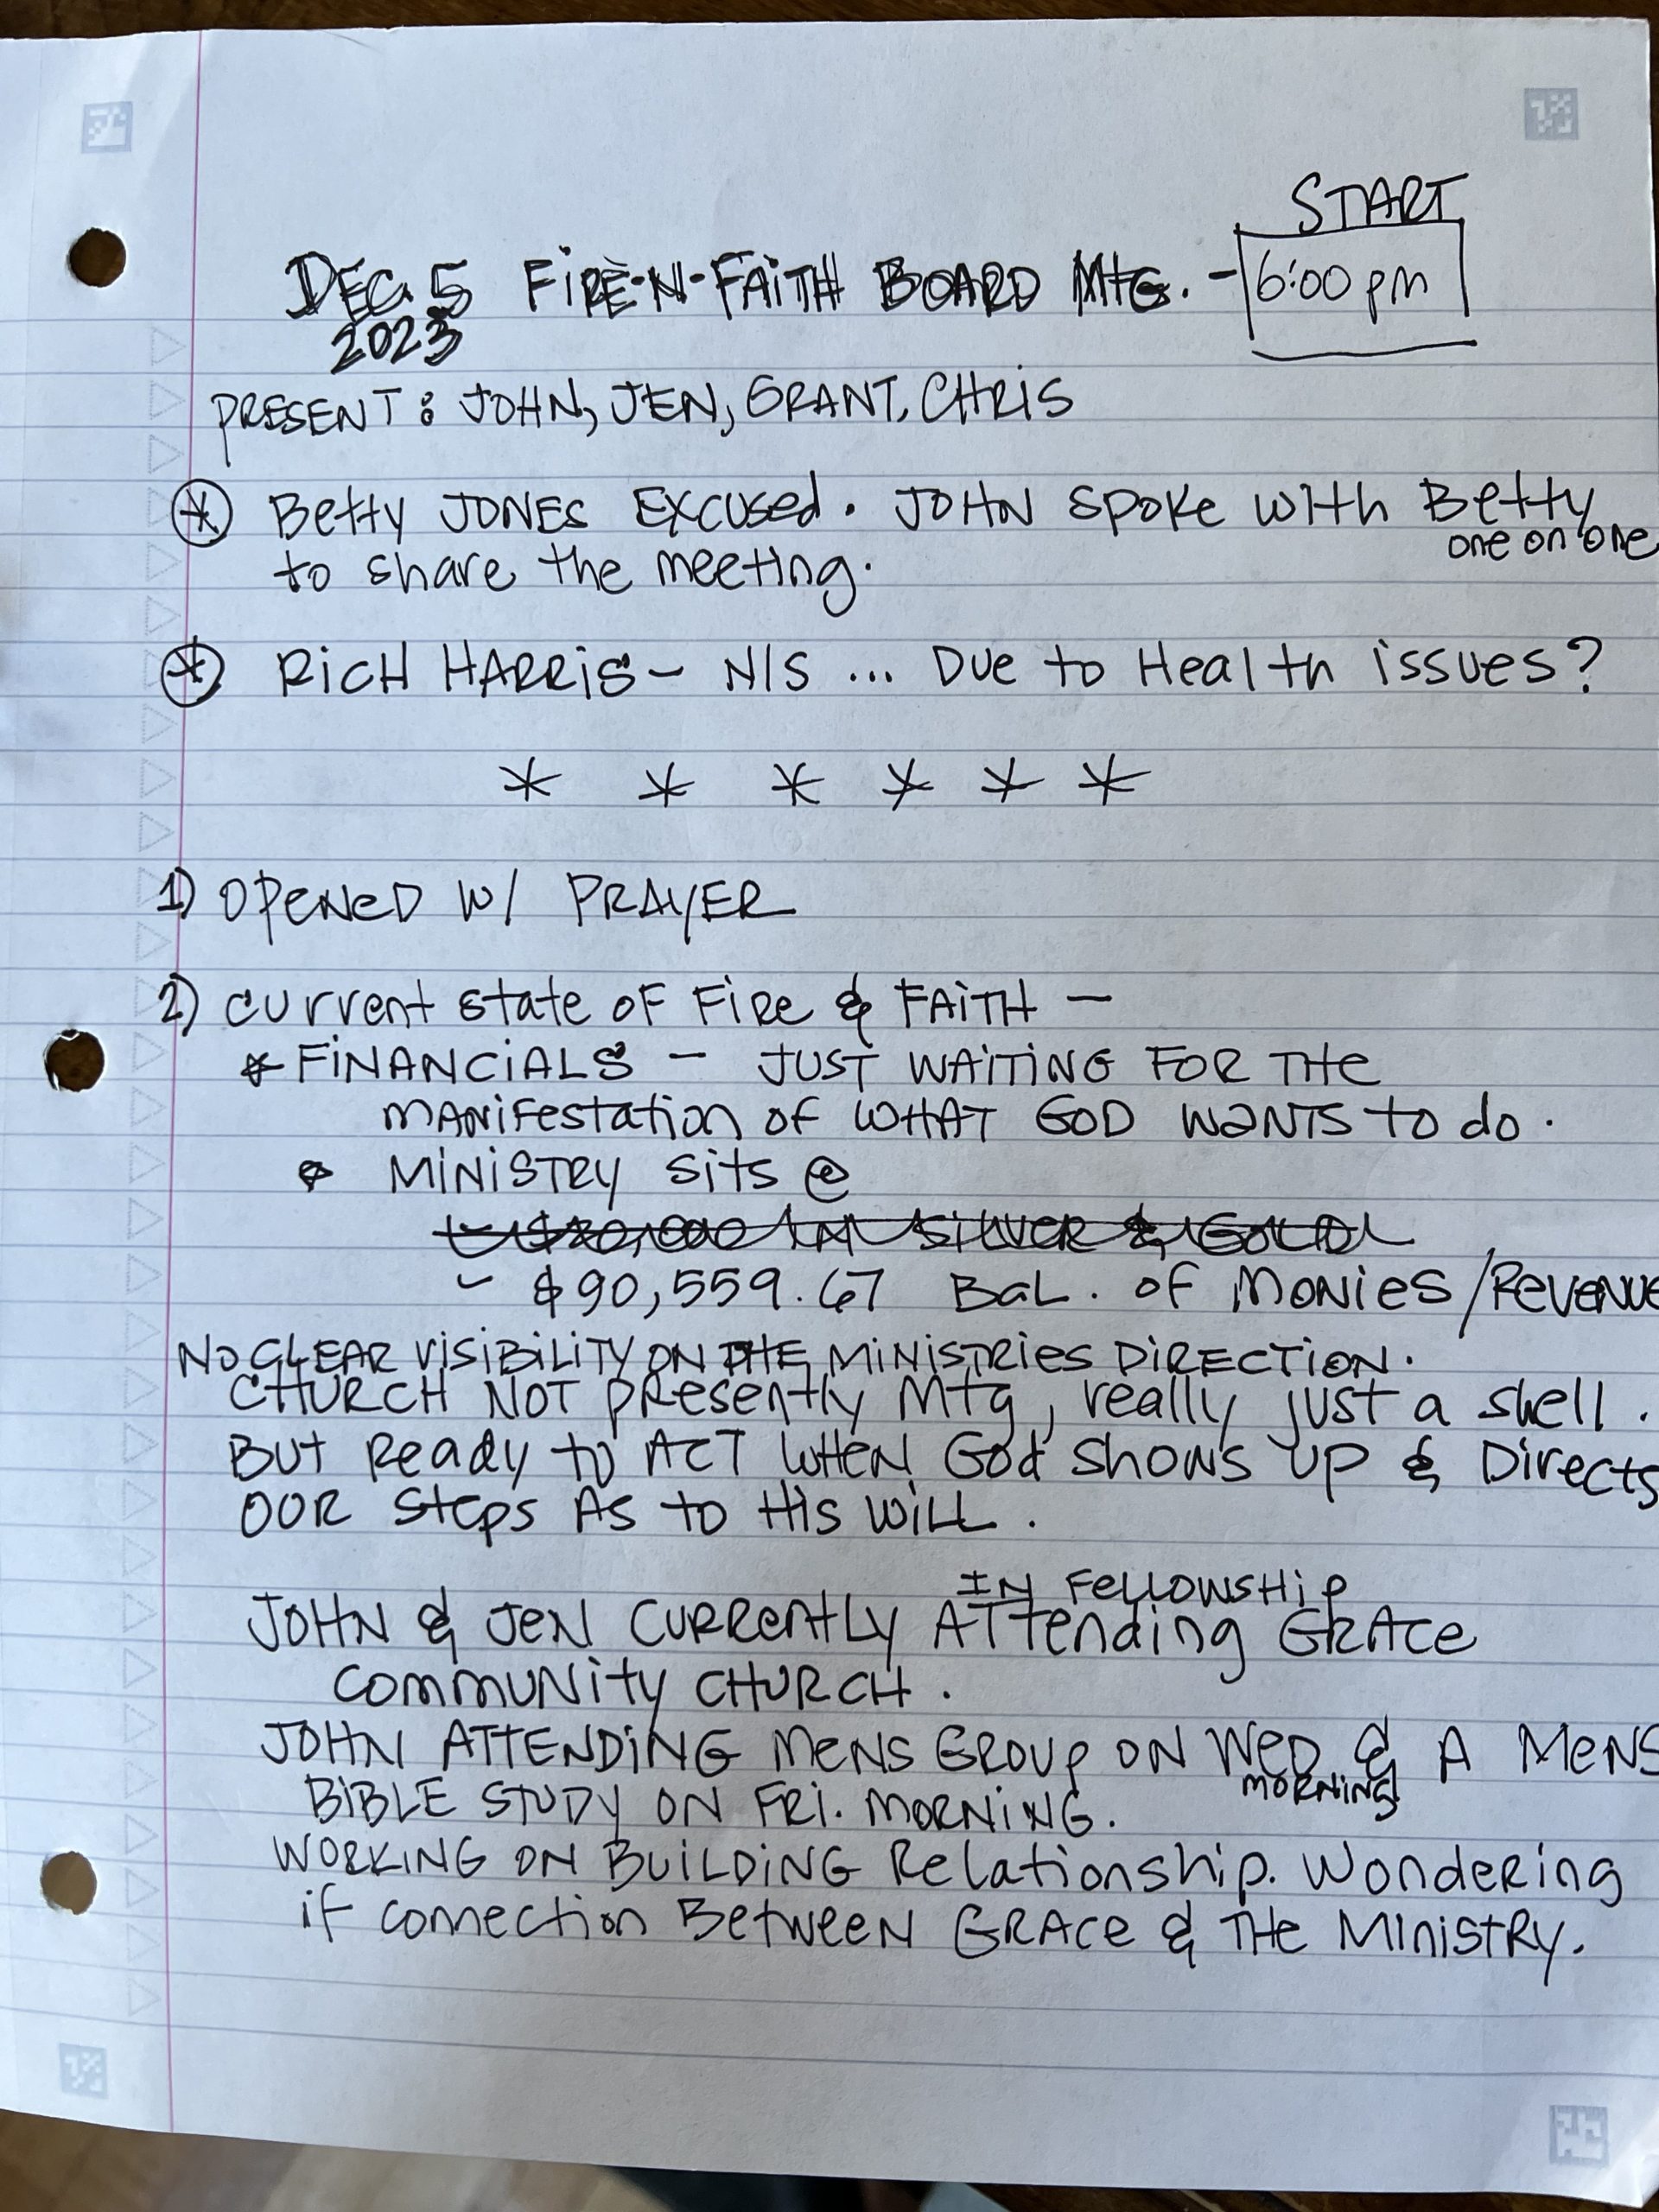 START
DEC. 5 FIRE-N-FAITH BOARD MTG. - 6:00 pm
2023
PRESENT: JOHN, JEN, GRANT, CHRIS
* Betty JONES EXCUSED. JOHN SPOKE WITH Betty
one on one
to share the meeting.
* RICH HARRIS - N/S ... DUE to Health issues?
* * * * * *
1) OPENED W/ PRAYER
2) current state OF FIRE & FAITH -
* FINANCIALS - JUST WAITING FOR THE
MANIFestation OF WHAT GOD WANTS to do.
MINISTRY sits @
IN SILVER & GOLD
- $90,559.67 BAL. OF MONIES/REVENUE
NO CLEAR VISIBILITY ON THE MINISTRIES DIRECTION.
CHURCH NOT PResently Mtg, really just a shell.
BUT Ready to ACT WHEN God shows up & Directs
OUR steps AS to His WILL.
IN FELLOWSHIP
JOHN & JEN CURRENTLY ATTending GRACE
COMMUNITY CHURCH.
JOHN ATTENDING MENS GROUP ON WED & A MENS
MORNING
BIBLE STUDY ON FRI. MORNING.
WORKING ON BUILDING Relationship. Wondering
if connection Between GRACE & THE MINISTRY.